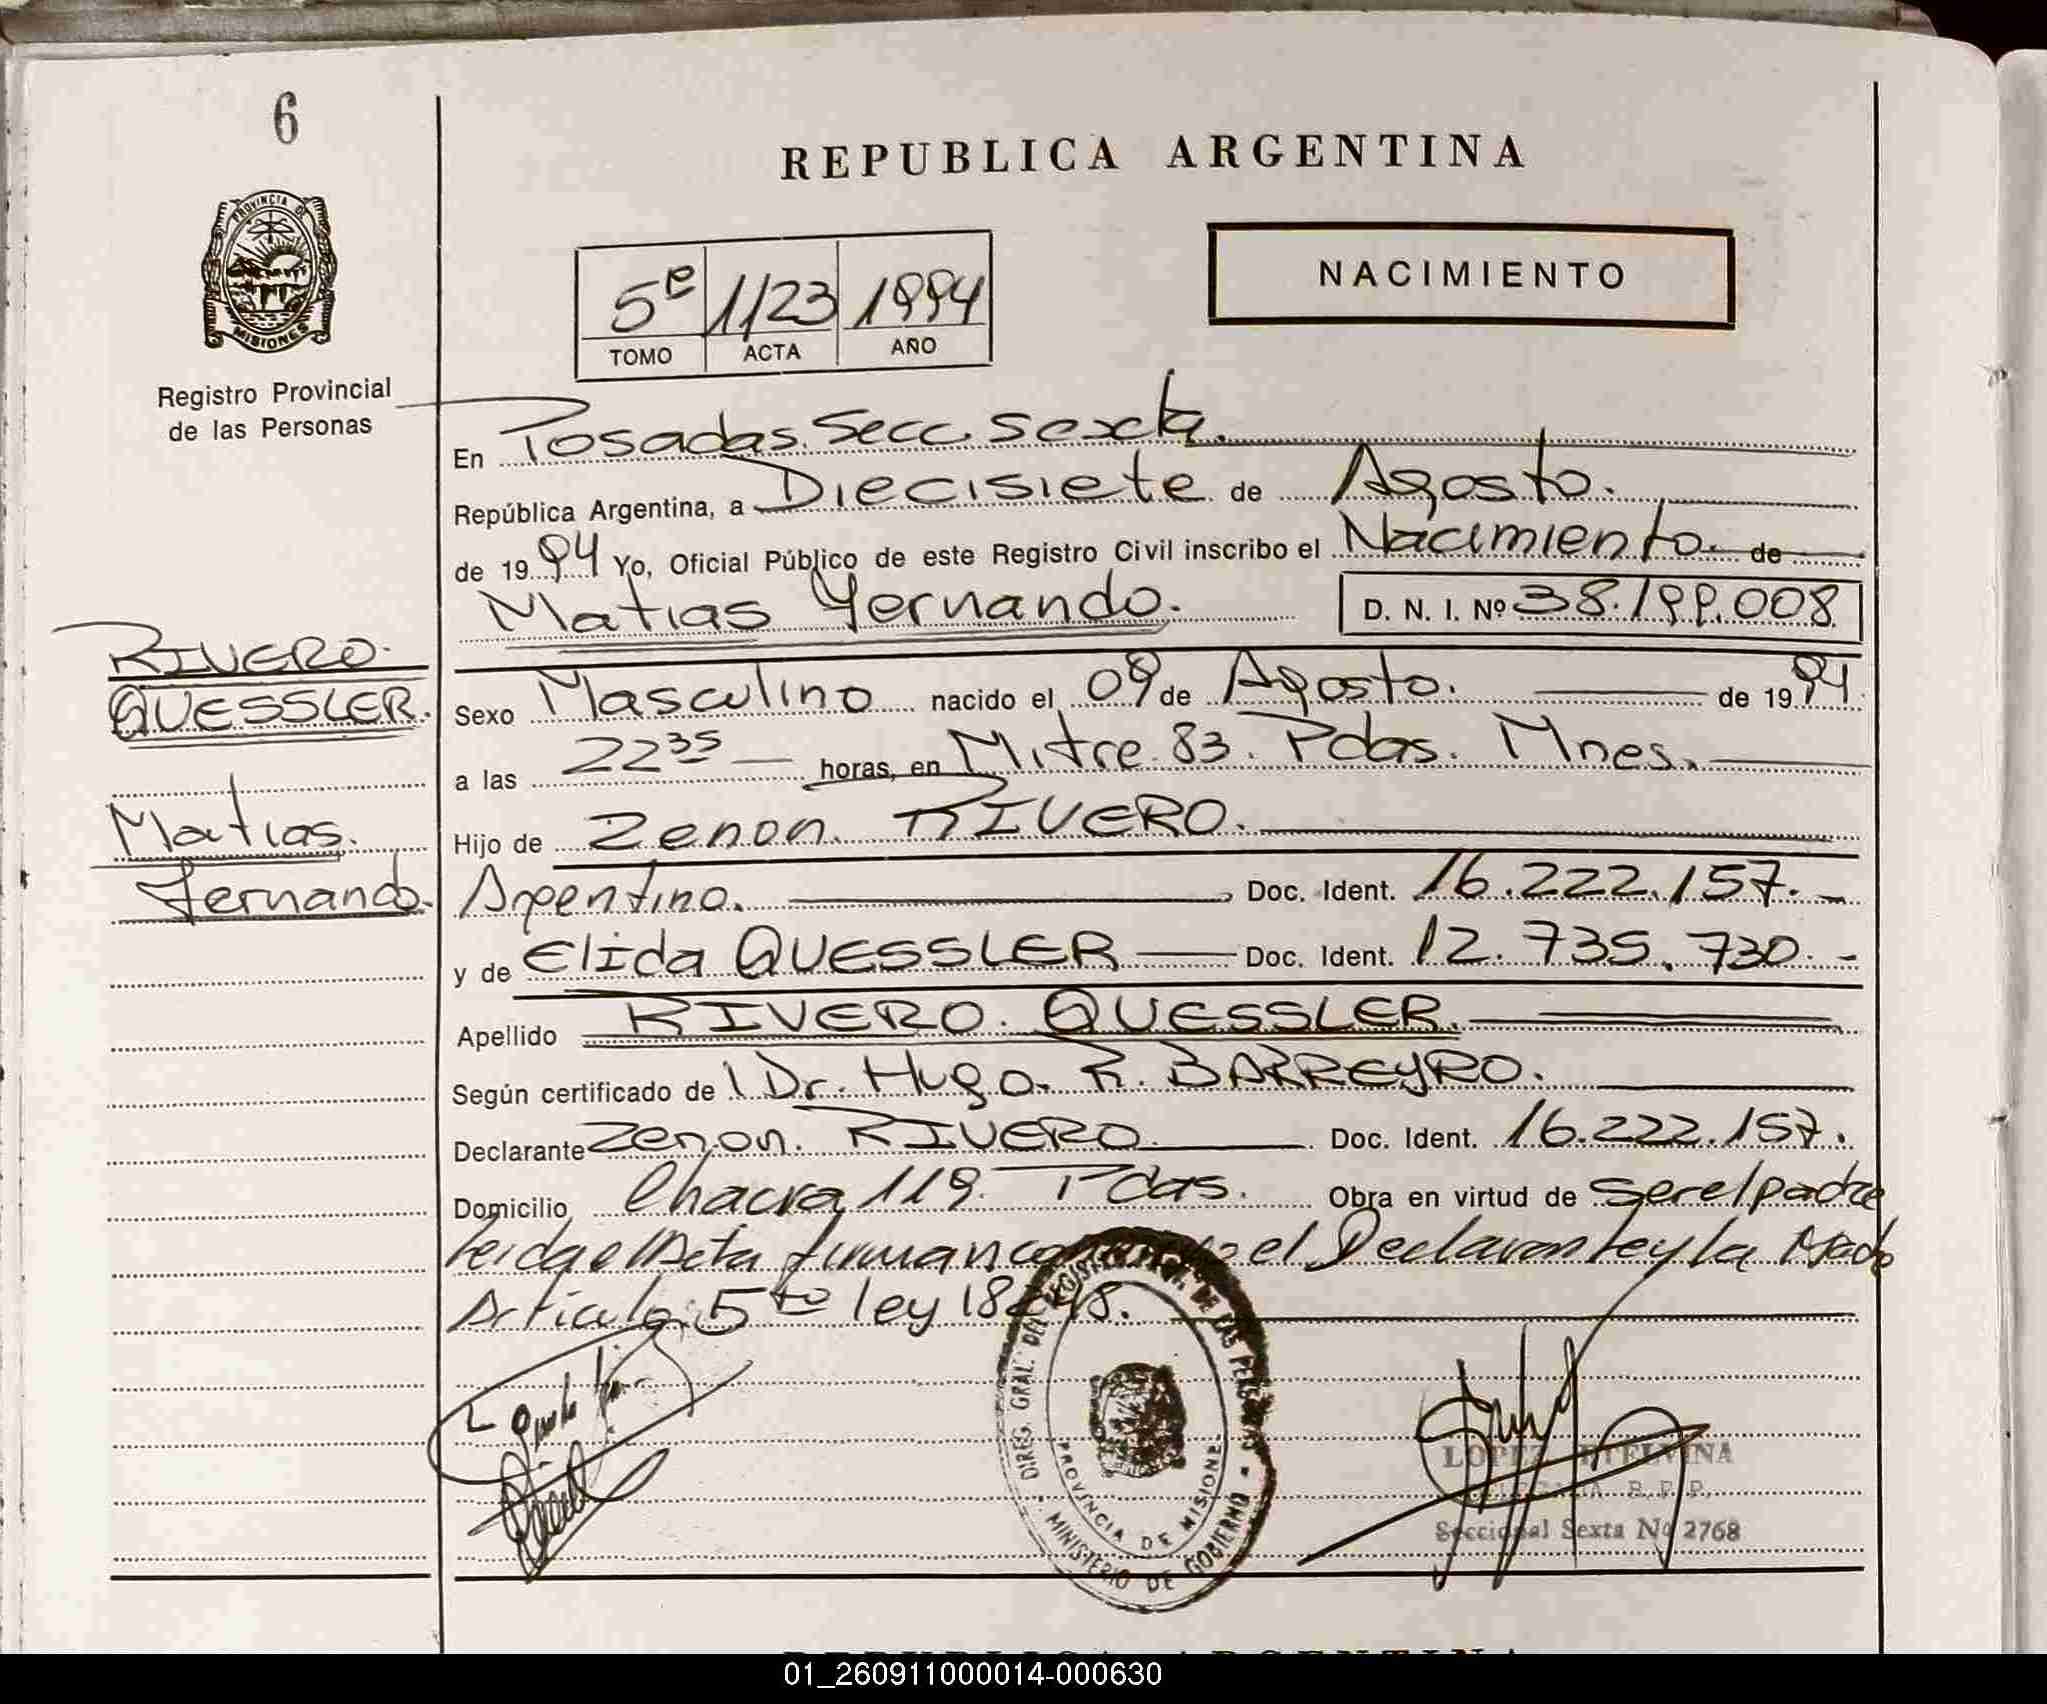 6
REPUBLICA ARGENTINA
PROVINCIA DE
MISIONES
NACIMIENTO
5º 1123 1994
TOMO ACTA AÑO
Registro Provincial
de las Personas
En Posadas. Secc. Sexta.
República Argentina, a Diecisiete de Agosto.
de 1994 Yo, Oficial Público de este Registro Civil inscribo el Nacimiento. de
Matias Fernando. D. N. I. Nº 38.199.008
RIVERO.
QUESSLER.
Matias.
Fernando.
Sexo Masculino nacido el 09 de Agosto. de 1994.
a las 22 35 horas, en Mitre 83. Pdas. Mnes.
Hijo de Zenon. RIVERO.
Argentino. Doc. Ident. 16.222.157.-
y de Elida QUESSLER Doc. Ident. 12.735.730.-
Apellido RIVERO. QUESSLER.
Según certificado de Dr. Hugo. R. BARREYRO.
Declarante Zenon. RIVERO. Doc. Ident. 16.222.157.
Domicilio Chacra 119. Pdas. Obra en virtud de ser el padre
Leida el Acta firman el Declarante y la Madre
Articulo: 5to ley 18248.
DIREG. GRAL. DEL REGISTRO DE LAS PERSONAS
PROVINCIA DE MISIONES
MINISTERIO DE GOBIERNO
LOPEZ ETELVINA
R. P. P.
Seccional Sexta Nº 2768
REPUBLICA ARGENTINA
01_260911000014-000630